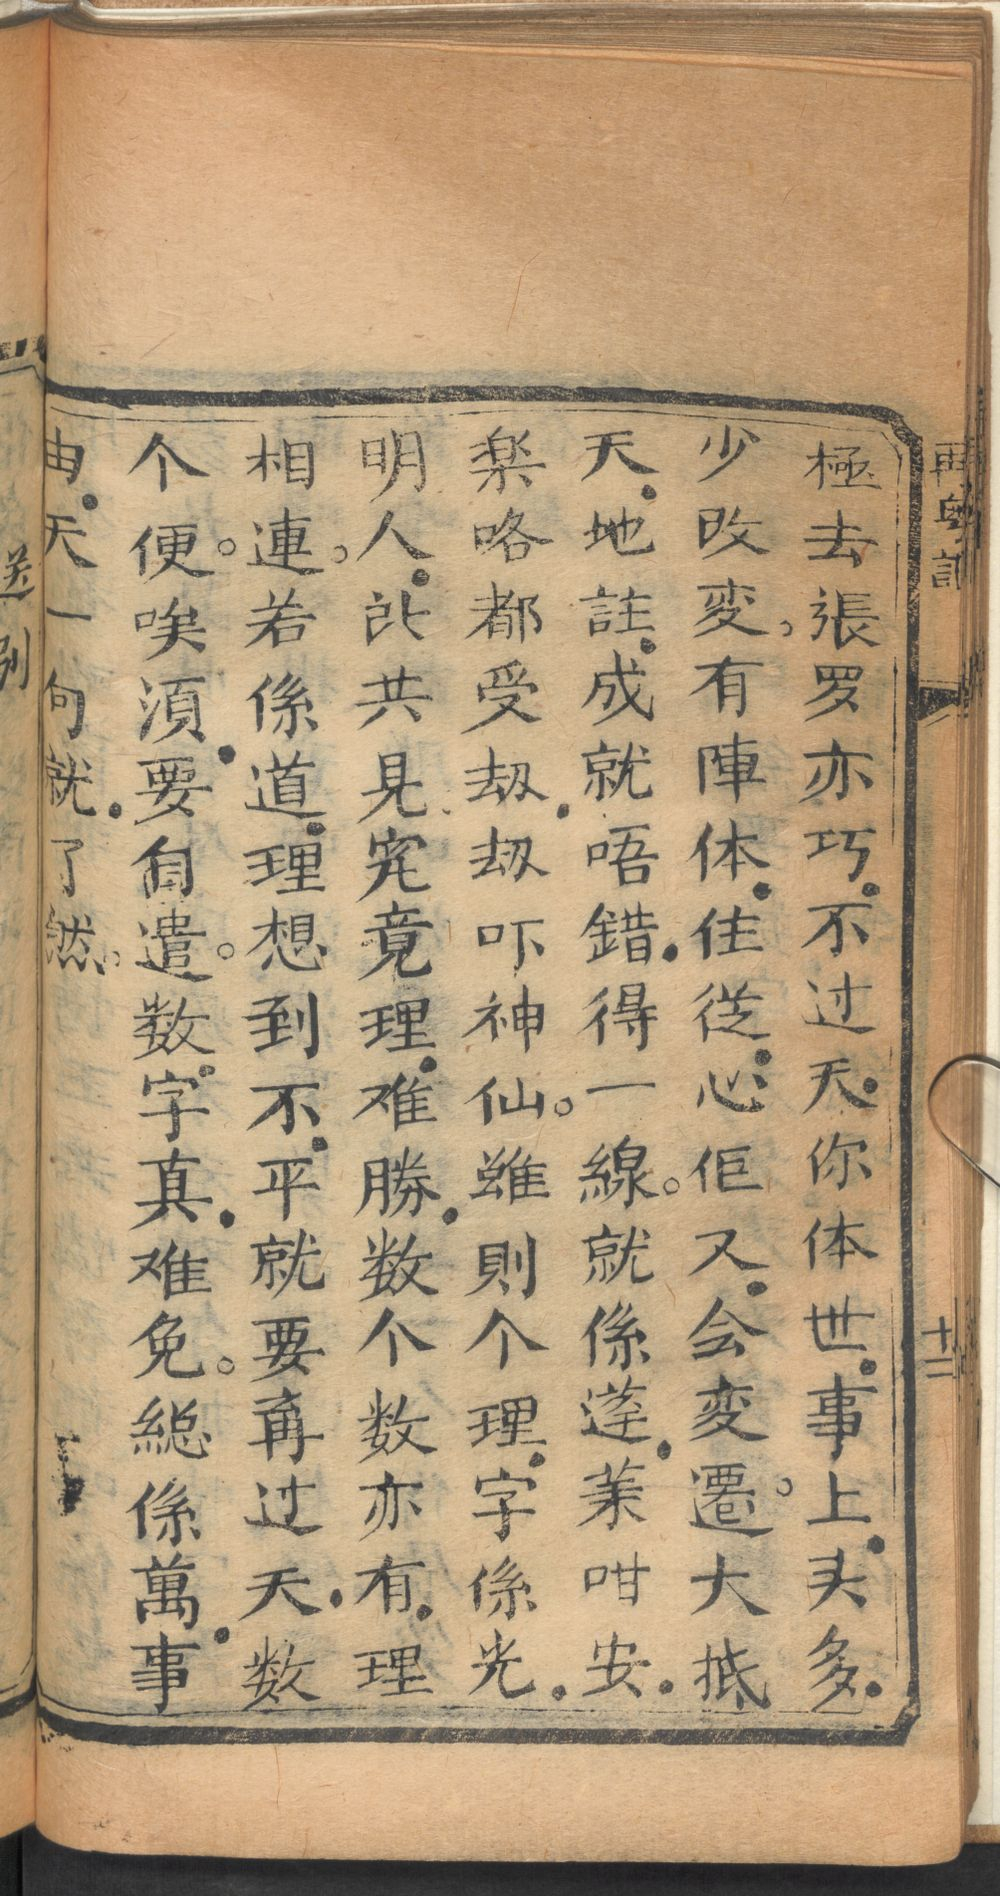 極去張罗亦巧不过天你体世事上头多
少改変。有陣体佳從心佢又会変遷。大抵
天地註成就唔錯得一線。就係蓬莱咁安
楽咯都受刼刼吓神仙。雖則个理字係光
明人所共見究竟理难勝数个数亦有理
相連。若係道理想到不平就要再过天数
个便。唉須要自遣。数字真难免。総係萬事
由天一句就了然。
再粤謳
十二
送别